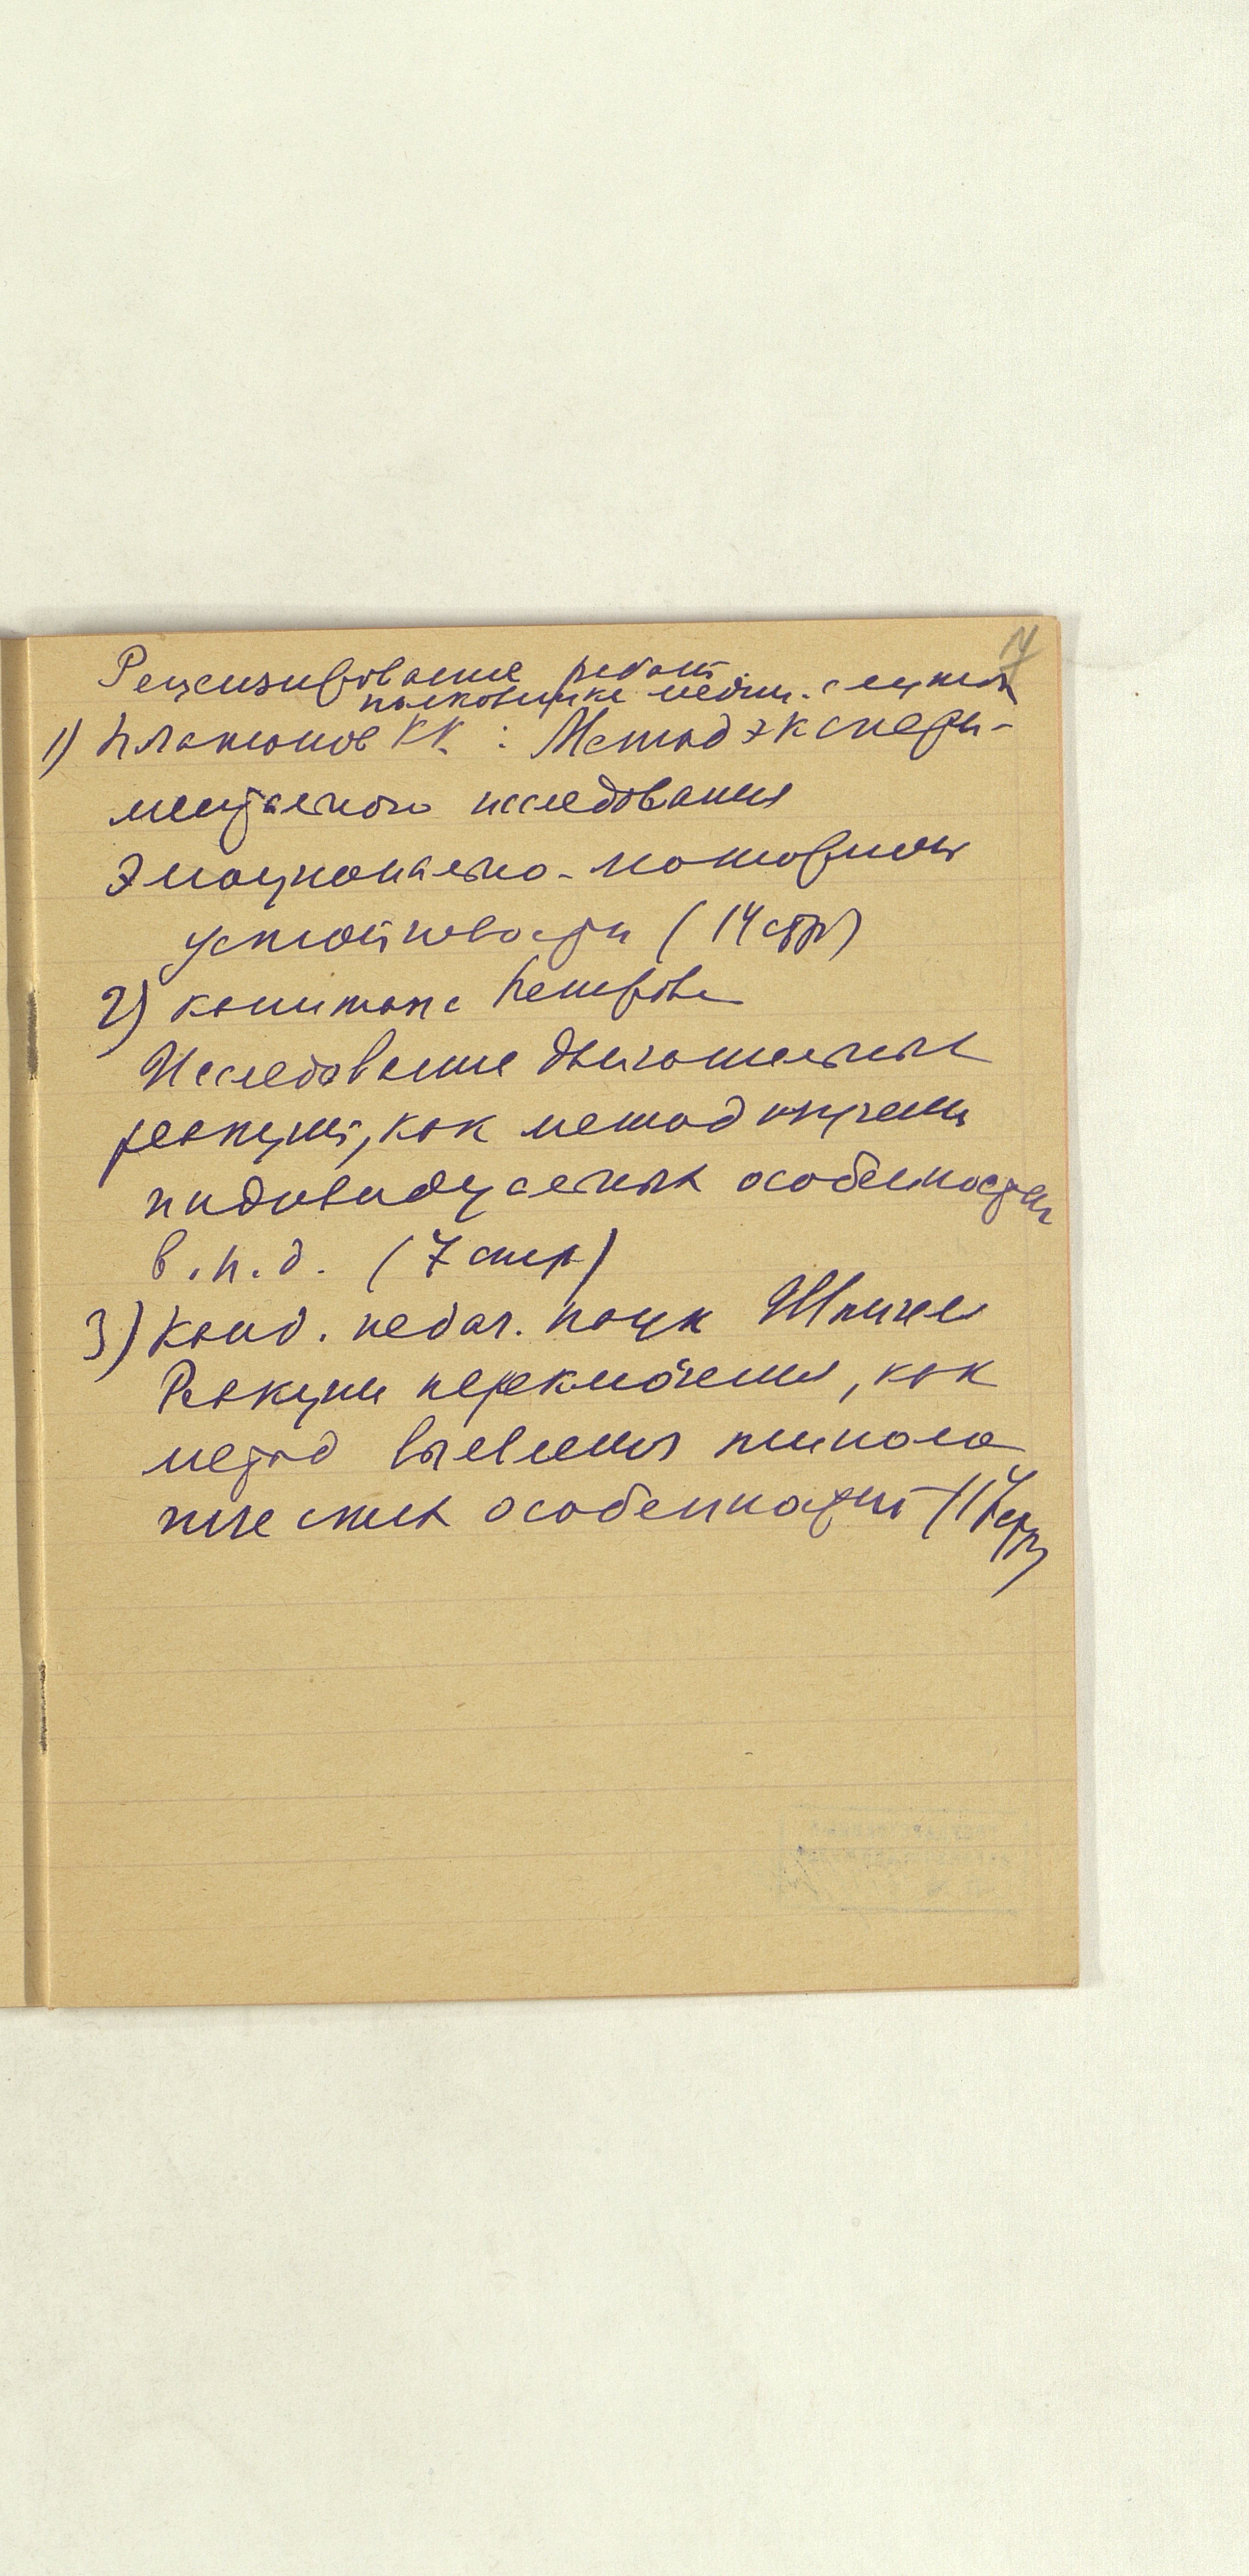 17
Рецензирование работ
полковника медиц. службы
1) Платонов КК : Метод экспери-
ментального исследования
Эмоционально-моторной
устойчивости (14 стр)
2) капитана Петрова
Исследование двигательных
реакций, как метод изучения
индивидуальных особенностей
в.н.д. (7 стр)
3) Канд. педаг. наук
Реакции переключения, как
метод выявления типоло
гических особенностей